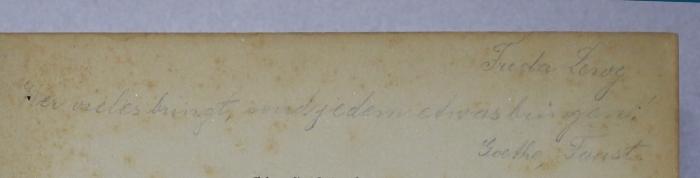 Frieda
Wer vieles bringt, wird jedem etwas bringen!
Goethe, Faust.